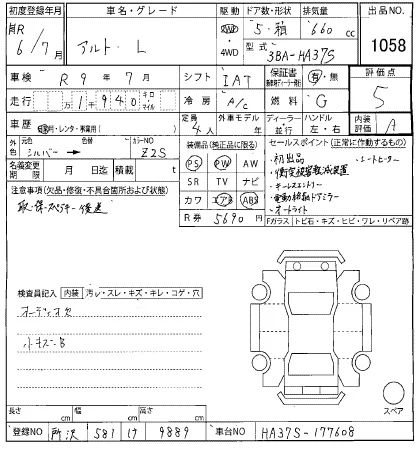 初度登録年月 車名・グレード 駆動 ドア数・形状 排気量 出品NO
R 6/7月 アルト・L 2WD 4WD 5・箱 660 cc 1058
型式 3BA-HA37S
車検 R 9年 7月 シフト IAT 保証書 有・無 評価点
走行 万 1 9 4 0 キロ マイル 冷房 A/C 燃料 G 5
車歴 自家用・レンタ・事業用( ) 定員 4人 外車モデル 年 ディーラー 並行 ハンドル 左・右 内装評価 A
外色 元色 シルバー 色替 カラーNO Z2S
装備品(純正品に限る) セールスポイント(正常に作動するもの)
名義変更期限 月 日迄 積載 t
PS PW AW
SR TV ナビ
カワ エアB ABS
R券 5690円
・初出品 ・シートヒーター
・衝突被害軽減装置
・キーレスエントリー
・電動格納ドアミラー
・オートライト
Fガラス トビ石・キズ・ヒビ・ワレ・リペア跡
注意事項(欠品・修復・不具合箇所および状態)
取・保・スペアキー後送
検査員記入 内装 汚レ・スレ・キズ・キレ・コゲ・穴
オーディオ欠
小キズ
長さ cm 幅 cm 高さ cm
スペア
登録NO 所沢 581 け 9889 車台NO HA37S-177608